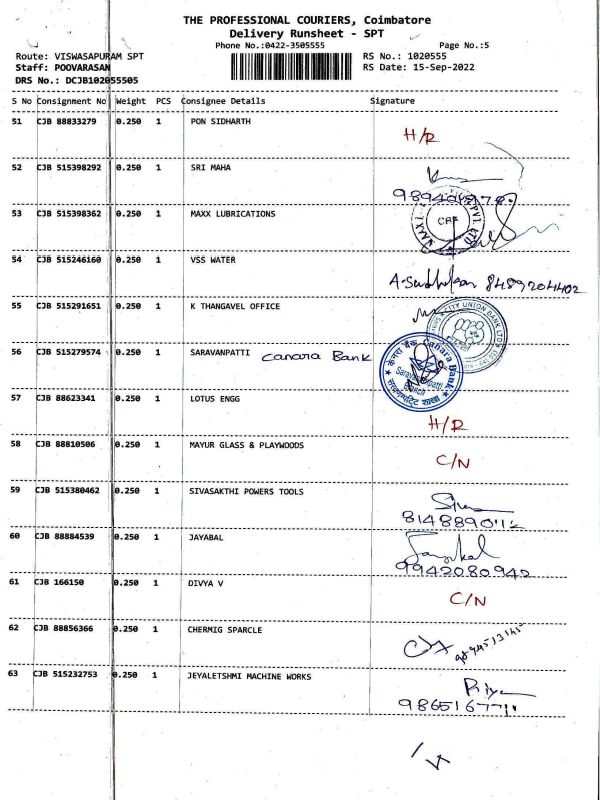 THE PROFESSIONAL COURIERS, Coimbatore
Delivery Runsheet - SPT
Phone No.:0422-3505555 Page No.:5
Route: VISWASAPURAM SPT RS No.: 1020555
Staff: POOVARASAN RS Date: 15-Sep-2022
DRS No.: DCJB102055505
S No Consignment No Weight PCS Consignee Details Signature
51 CJB 88833279 0.250 1 PON SIDHARTH
H/R
52 CJB 515398292 0.250 1 SRI MAHA
53 CJB 515398362 0.250 1 MAXX LUBRICATIONS
54 CJB 515246160 0.250 1 VSS WATER
8489204402
55 CJB 515291651 0.250 1 K THANGAVEL OFFICE
CITY UNION BANK LTD
56 CJB 515279574 0.250 1 SARAVANPATTI Canara Bank
केनरा बैंक Canara Bank
57 CJB 88623341 0.250 1 LOTUS ENGG
H/R
58 CJB 88810506 0.250 1 MAYUR GLASS & PLAYWOODS
C/N
59 CJB 515380462 0.250 1 SIVASAKTHI POWERS TOOLS
60 CJB 88884539 0.250 1 JAYABAL
9942080942
61 CJB 166150 0.250 1 DIVYA V
C/N
62 CJB 88856366 0.250 1 CHERMIG SPARCLE
63 CJB 515232753 0.250 1 JEYALETSHMI MACHINE WORKS
Riya